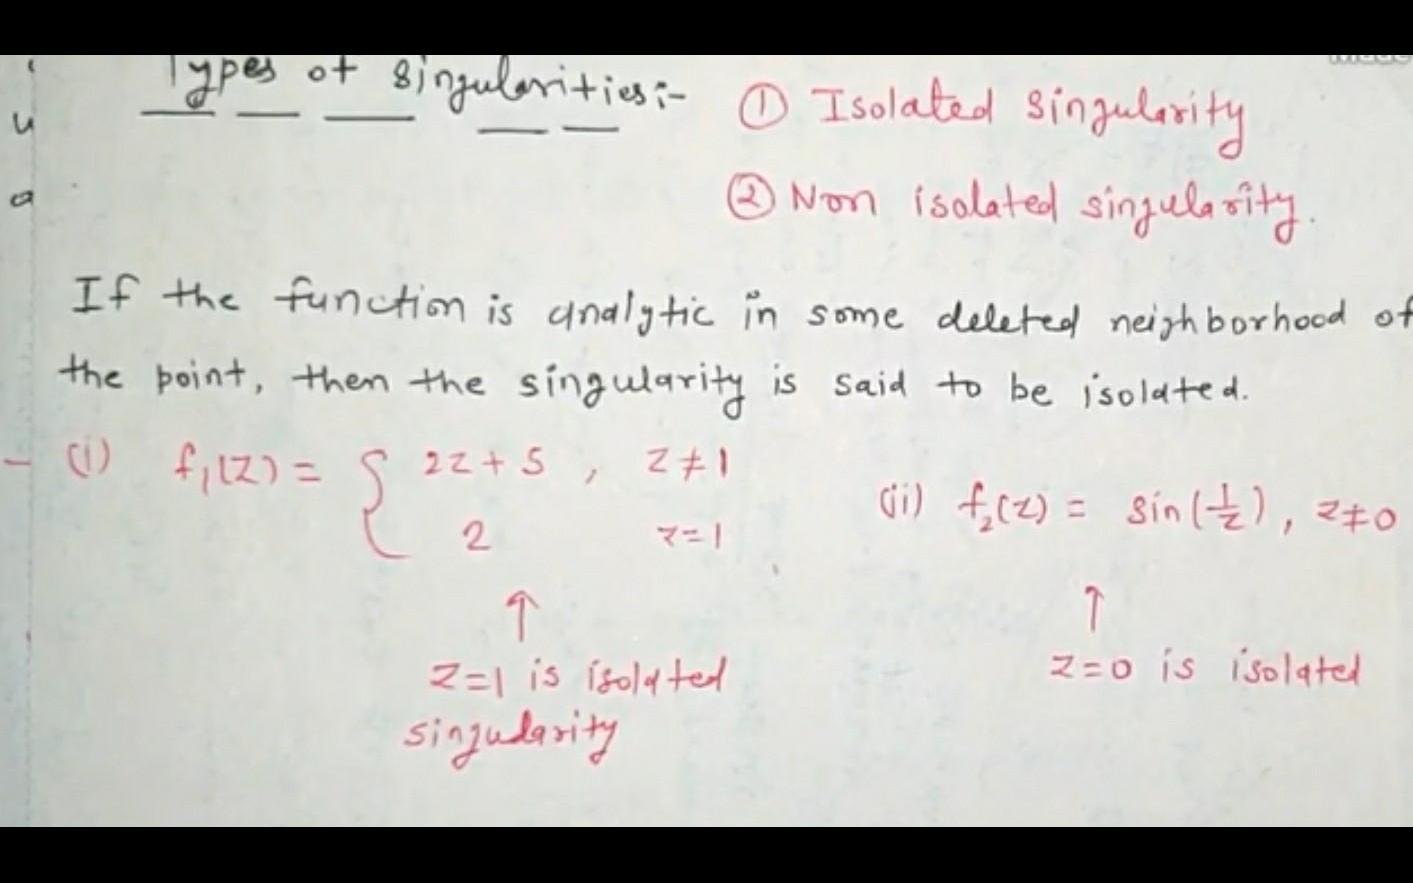 Types of singularities:-
① Isolated singularity
② Non isolated singularity.
If the function is analytic in some deleted neighborhood of
the point, then the singularity is said to be isolated.
(i) f₁(z) = { 2z+5 , z≠1
2 z=1
(ii) f₂(z) = sin(1/z), z≠0
↑
z=1 is isolated
singularity
↑
z=0 is isolated